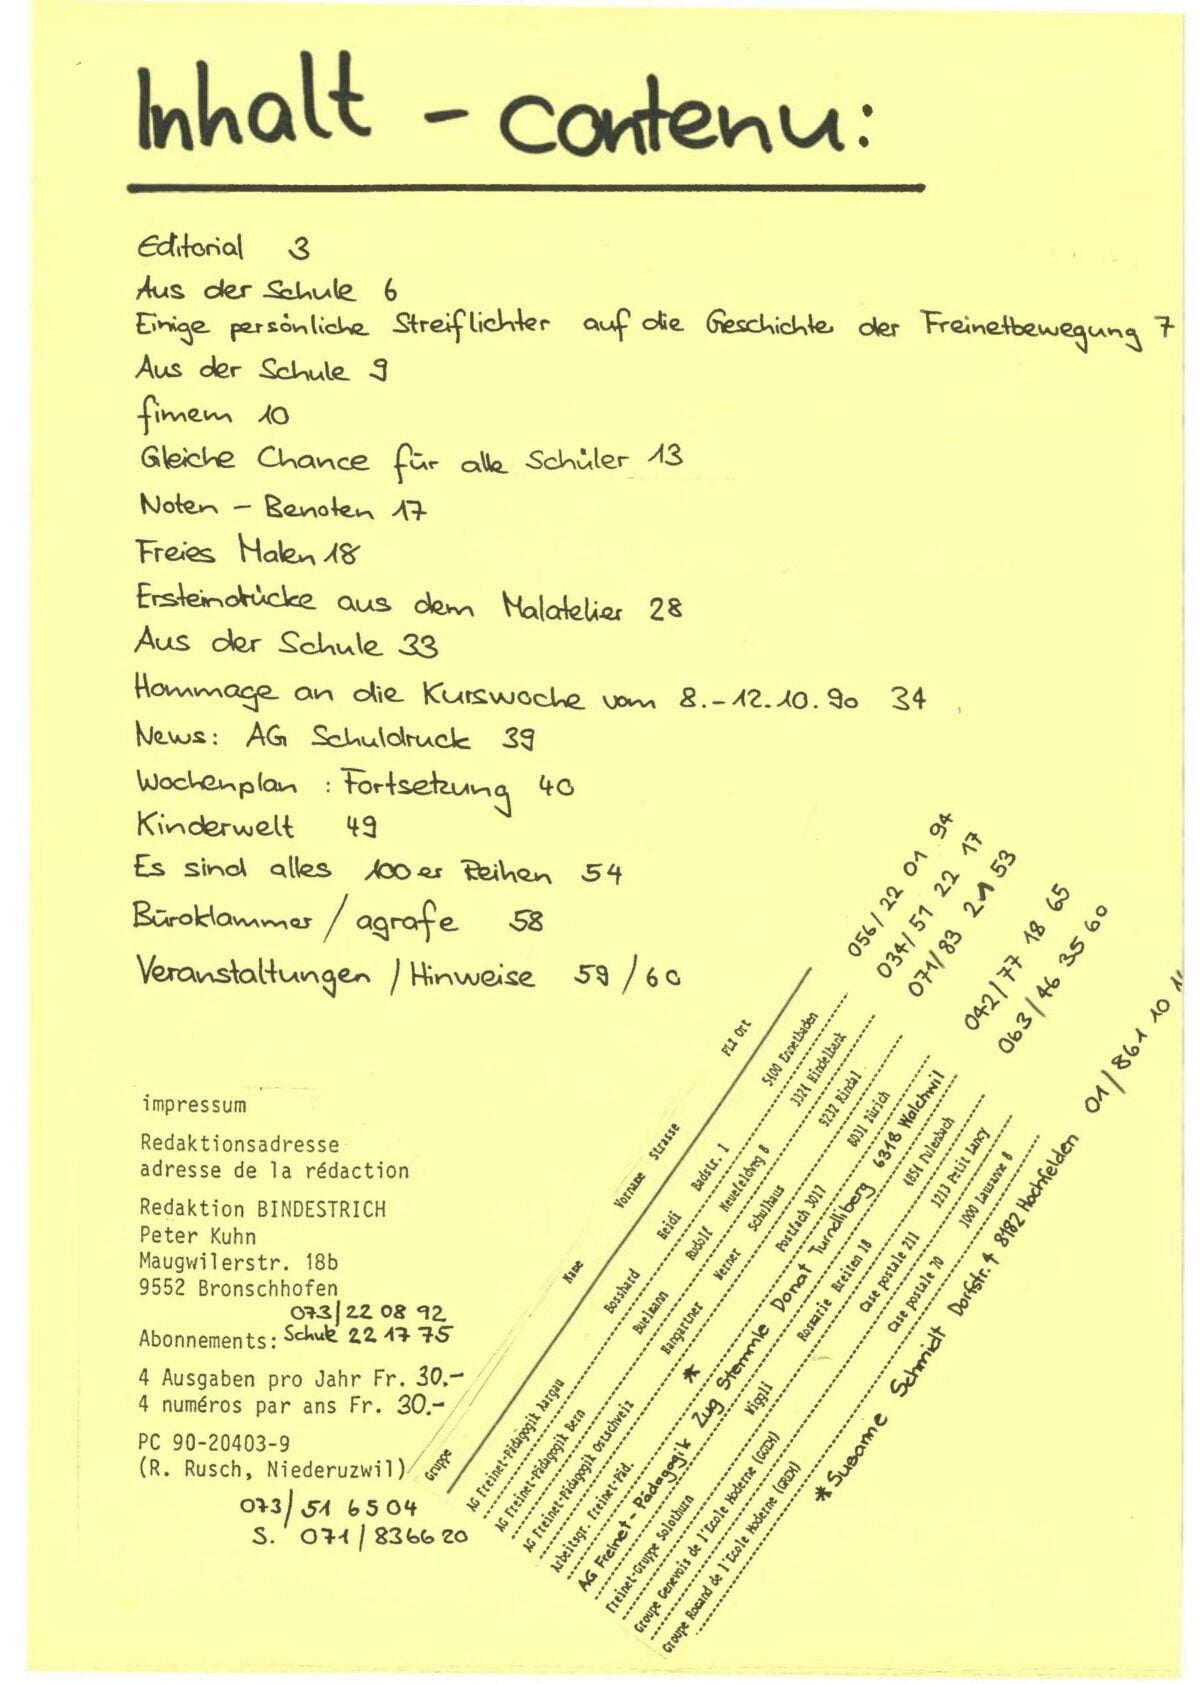 Inhalt - contenu:
Editorial 3
Aus der Schule 6
Einige persönliche Streiflichter auf die Geschichte der Freinetbewegung 7
Aus der Schule 9
fimem 10
Gleiche Chance für alle Schüler 13
Noten - Benoten 17
Freies Malen 18
Ersteindrücke aus dem Malatelier 28
Aus der Schule 33
Hommage an die Kurswoche vom 8.-12.10.90 34
News: AG Schuldruck 39
Wochenplan : Fortsetzung 40
Kinderwelt 49
Es sind alles 100er Reihen 54
Büroklammer / agrafe 58
Veranstaltungen / Hinweise 59/60
impressum
Redaktionsadresse
adresse de la rédaction
Redaktion BINDESTRICH
Peter Kuhn
Maugwilerstr. 18b
9552 Bronschhofen
073/22 08 92
Abonnements: Schule 22 17 75
4 Ausgaben pro Jahr Fr. 30.-
4 numéros par ans Fr. 30.-
PC 90-20403-9
(R. Rusch, Niederuzwil)
073/51 65 04
S. 071/83 66 20
Gruppe Name Vorname Strasse PLZ Ort
AG Freinet-Pädagogik Aargau Bosshard Heidi Badstr. 1 5400 Ennetbaden 056/22 01 94
AG Freinet-Pädagogik Bern Buelmann Rudolf Neuefeldweg 8 3324 Hindelbank 034/51 22 17
AG Freinet-Pädagogik Ostschweiz Bangartner Werner Schulhaus 9232 Rindal 071/83 21 53
Arbeitsgr. Freinet-Päd. * Postfach 3017 8031 Zürich
AG Freinet-Pädagogik Zug Stemmle Donat Turndliberg 6318 Walchwil 042/77 18 65
Freinet-Gruppe Solothurn Wiggli Rosmarie Breiten 18 4854 Fulenbach 063/46 35 60
Groupe Genevois de l'Ecole Moderne (GGEM) Case postale 211 1213 Petit Lancy
Groupe Romand de l'Ecole Moderne (GREM) Case postale 70 1000 Lausanne 8
* Susanne Schmidt Dorfstr. 4 8182 Hochfelden 01/861 10